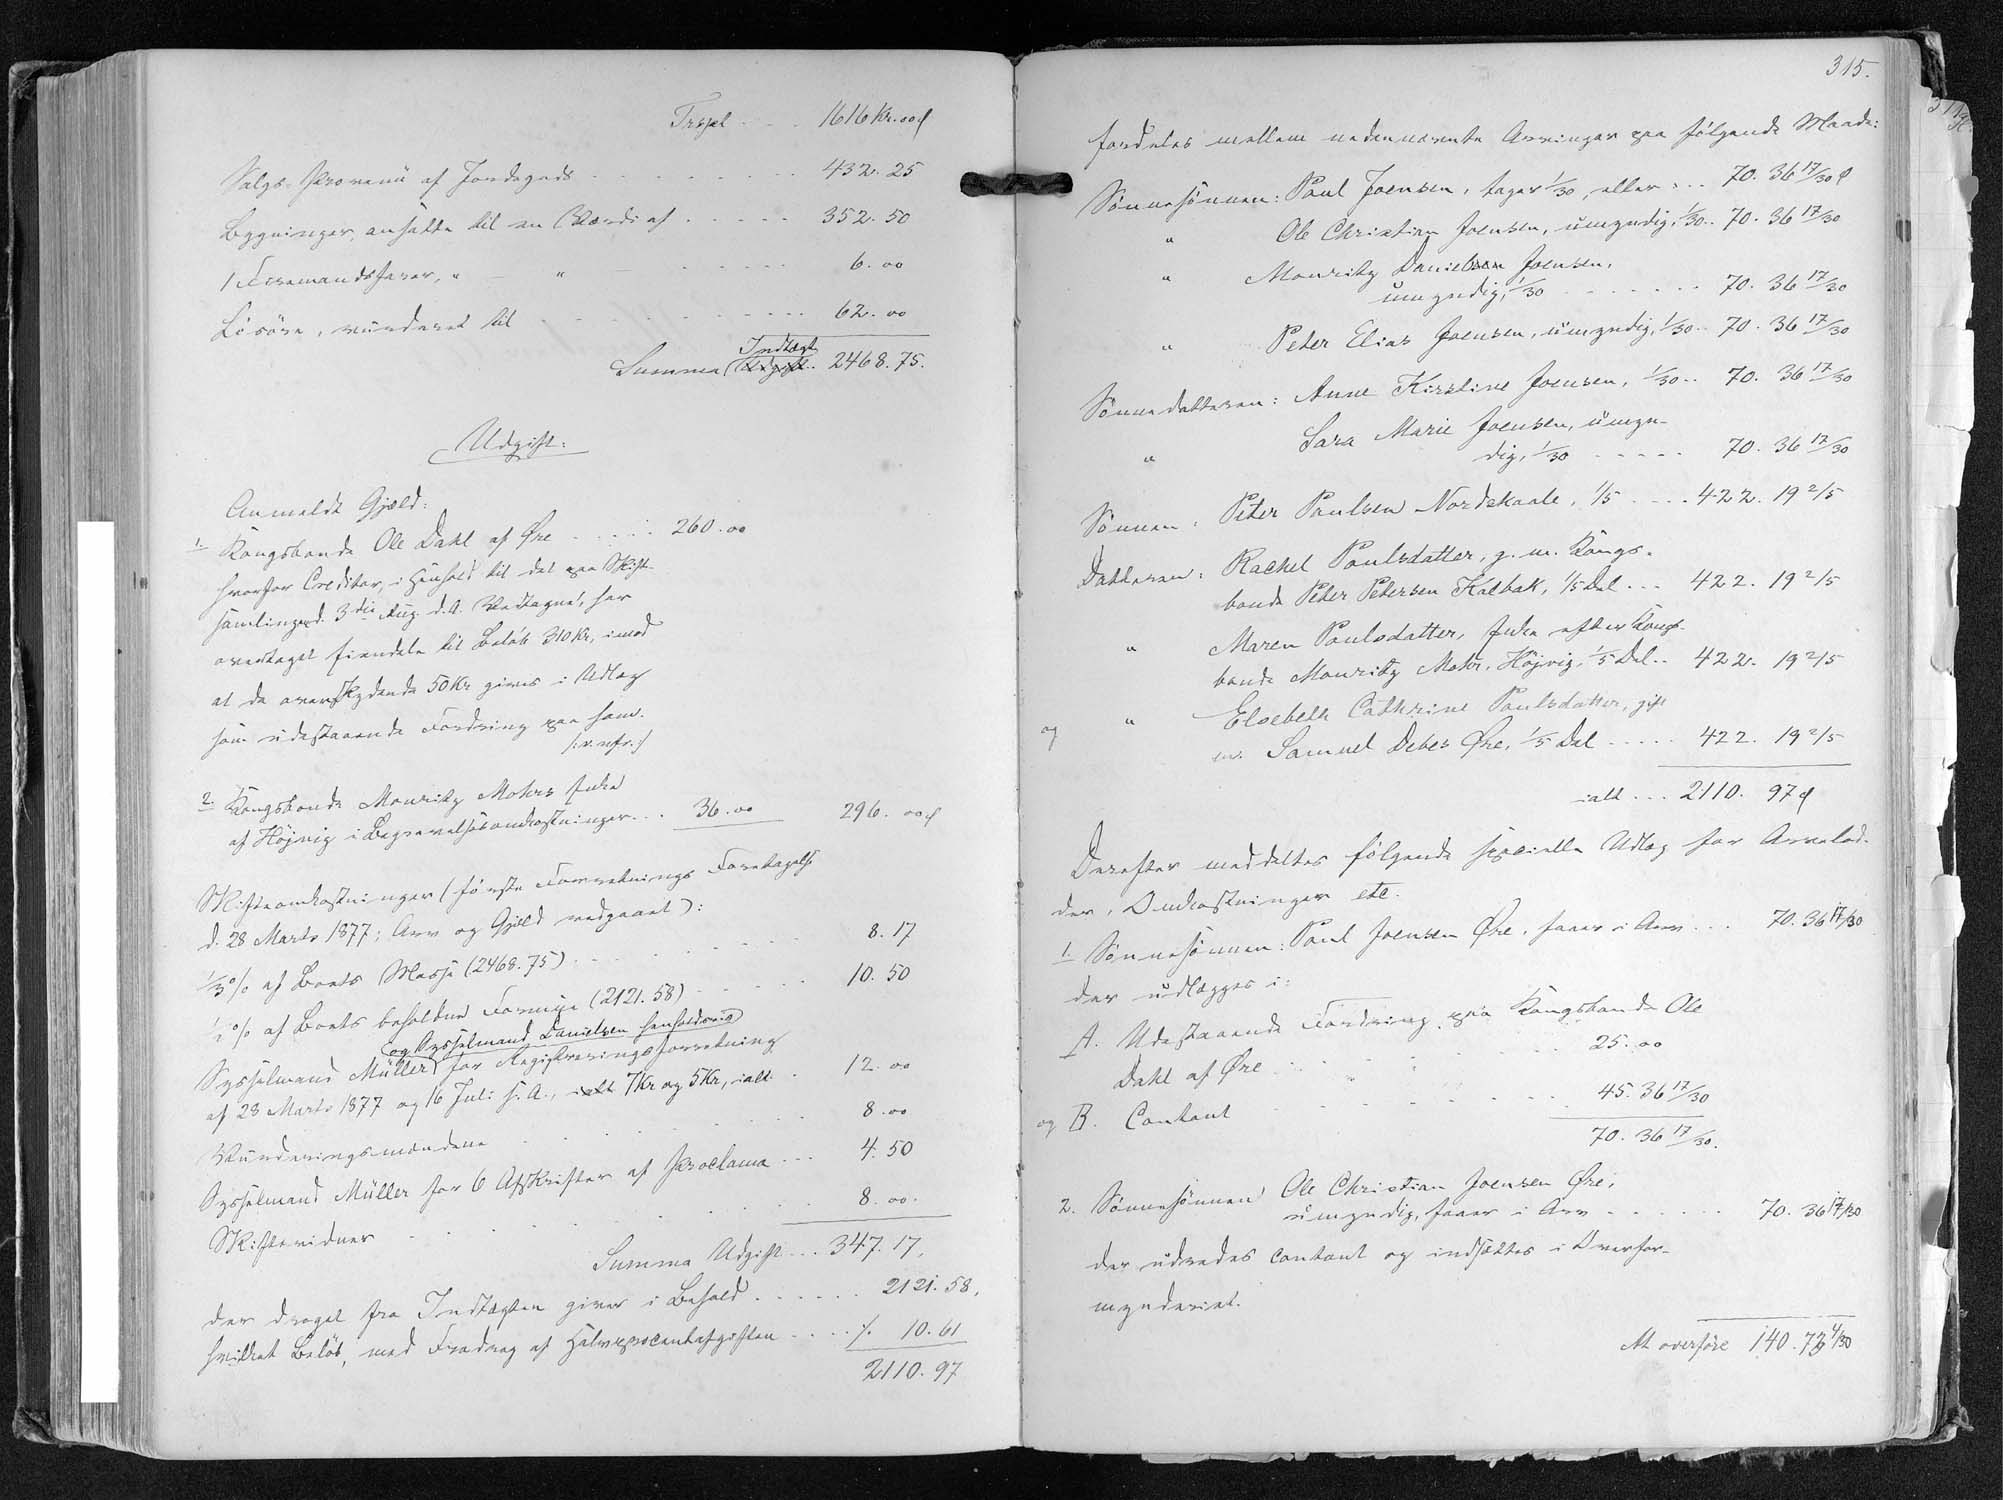 Trspt . . . 1616 Kr. 00 ø
Salgs-Provenü af Jordegods . . . . . . . . 432. 25
Bygninger, ansatte til en Værdi af . . . . . 352. 50
1 Firemandsfarer, " — " — . . . . . . 6. 00
Lösöre, vurderet til . . . . . . . . . 62. 00
Indtægt
Summa Udgift . . 2468. 75.
Udgift:
Anmeldt Gjæld:
1. Kongsbonde Ole Dahl af Øre . . . . . 260. 00
hvorfor Creditor, i Henhold til det paa Skift-
samlinged. 3die Aug. d. A. Vedtagne, har
overtaget fiendele til Beløb 310 Kr, imod
at de overskydende 50 Kr gives i Udlæg
som udestaaende Fordring paa ham.
/: v. nfr. :/
2. Kongsbonde Mouritz Mohrs Enke
af Höjvig i Begravelsesomkostninger . . . 36. 00 296. 00 ø
Skifteomkostninger (første Forretnings Foretagelse
d. 28 Marts 1877; Arv og Gjæld vedgaaet):
⅓ % af Boets Masse (2468. 75) . . . . . . . 8. 17
½ % af Boets beholdne Formue (2121. 58) . . . . . 10. 50
og Sysselmand Danielsen henholdsvis
Sysselmand Müller for Registreringsforretning
af 28 Marts 1877 og 16 Juli s. A., ialt 7 Kr og 5 Kr, ialt . 12. 00
Vurderingsmændene . . . . . . . . 8. 00
Sysselmand Müller for 6 Afskrifter af Proclama . . . 4. 50
Skiftevidner . . . . . . . . . 8. 00.
Summa Udgift . . . 347. 17.
der draget fra Indtægten giver i Behold . . . . . . 2121. 58.
hvilket Beløb, med Fradrag af Halvprocentafgiften . . . . ./. 10. 61
2110. 97
315.
fordeles mellem nedennævnte Arvinger paa følgende Maade:
Sönnesönnen: Poul Joensen, tager 1/30, eller : . . 70. 36 17/30 ø
" Ole Christian Joensen, umyndig, 1/30 . . 70. 36 17/30
" Mouritz Danielsen Joensen,
umyndig, 1/30 . . . . . . . 70. 36 17/30
" Peter Elias Joensen, umyndig, 1/30 . . 70. 36 17/30
Sönnedatteren: Anne Kirstine Joensen, 1/30 . . 70. 36 17/30
" Sara Marie Joensen, umyn-
dig, 1/30 . . . . . 70. 36 17/30
Sönnen: Peter Poulsen Nordskaale, 1/5 . . . . 422. 19 2/5
Datteren: Rachel Poulsdatter, g. m. Kongs-
bonde Peter Petersen Kalbak, 1/5 Del . . . 422. 19 2/5
" Maren Poulsdatter, Enke efter Kongs-
bonde Mouritz Mohr, Höjvig, 1/5 Del . . 422. 19 2/5
og " Elsebeth Cathrine Poulsdatter, gift
m. Samuel Debes Øre, 1/5 Del . . . . . 422. 19 2/5
ialt . . . 2110. 97 ø
Derefter meddeltes følgende specielle Udlæg for Arvelod-
der, Omkostninger etc.
1. Sönnesönnen: Poul Joensen Øre, faaer i Arv . . . 70. 36 17/30
der udlægges i:
A. Udestaaende Fordring paa Kongsbonde Ole
Dahl af Øre . . . . . . . 25. 00
og B. Contant . . . . . . . . 45. 36 17/30
70. 36 17/30.
2. Sönnesönnen Ole Christian Joensen Øre,
umyndig, faaer i Arv . . . . . . 70. 36 17/30
der udredes contant og indsættes i Overfor-
mynderiet.
At overføre 140. 73 4/30